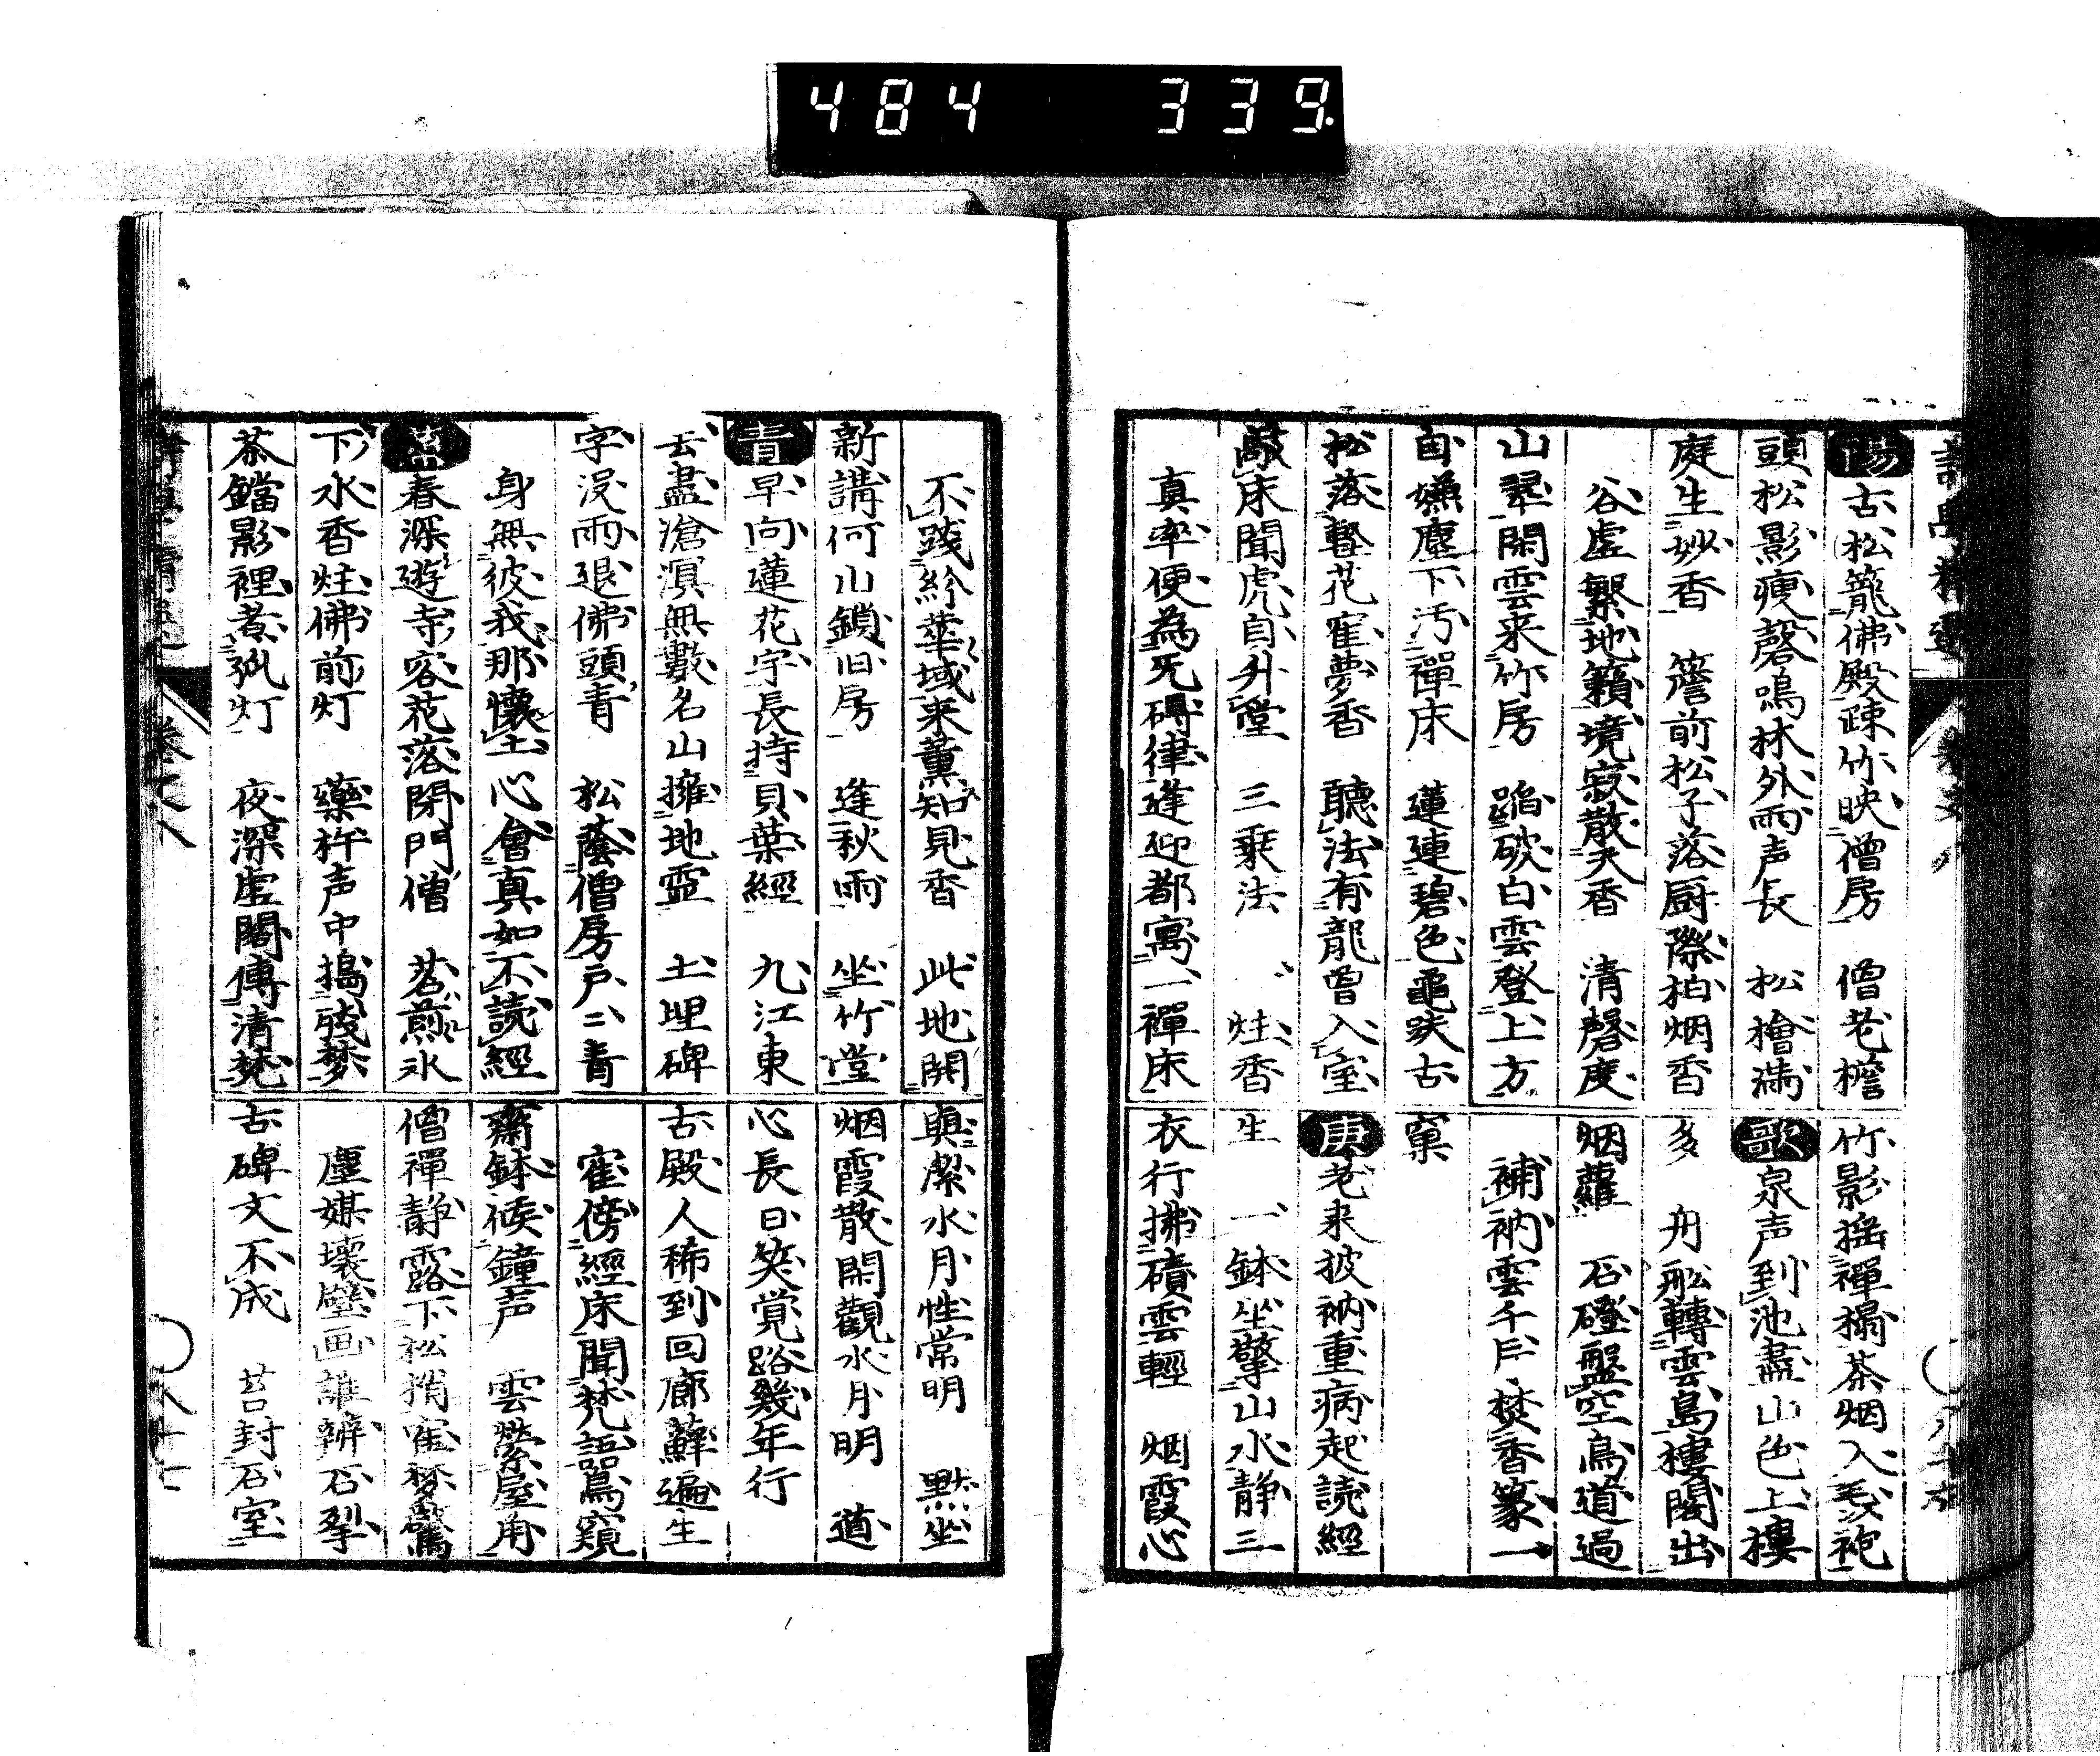 484 339.
陽古松籠佛殿疎竹映僧房 僧老檐
頭松影痩磬鳴林外雨声長 松檜満
庭生妙香 簷前松子落厨際柏烟香
谷虚繋地籟境寂散天香 清磬度
山翠閑雲来竹房 蹈破白雲登上方
自嫌塵下汚禪床 蓮連碧色龜趺古
松落暫花寉夢香 聽法有龍曽入室
敲床聞虎自升堂 三乗法 炷香
真率便為旡碍律逢迎都寓一禪床
竹影揺禪榻茶烟入毳袍
歌泉声到池盡山色上樓
多 舟舩轉雲島樓閣出
烟蘿 石磴盤空鳥道過
補衲雲千片焚香篆一
窠
庚老来披衲重病起読經
生 一鉢坐擎山水静三
衣行拂磧雲輕 烟霞心
不踐紛華域来薫知見香 此地開
新講何山鎖旧房 逢秋雨 坐竹堂
青早向蓮花宇長持貝葉經 九江東
去盡滄溟無數名山擁地霊 土埋碑
字浸雨退佛頭青 松蔭僧房戸二青
身無彼我那懐土心會真如不読經
蒸春深遊寺客花落閉門僧 茗煎氷
下水香炷佛前灯 藥杵声中搗残夢
茶鐺影裡煮孤灯 夜深虚閣傳清梵
興潔水月性常明 黙坐
烟霞散閑觀水月明 道
心長日笑覚路幾年行
古殿人稀到回廊蘚遍生
寉傍經床聞梵語鳥窺
齋鉢候鐘声 雲縈屋角
僧禪静露下松梢寉夢驚
塵媒壊壁画誰辨石犁
古碑文不成 苔封石室